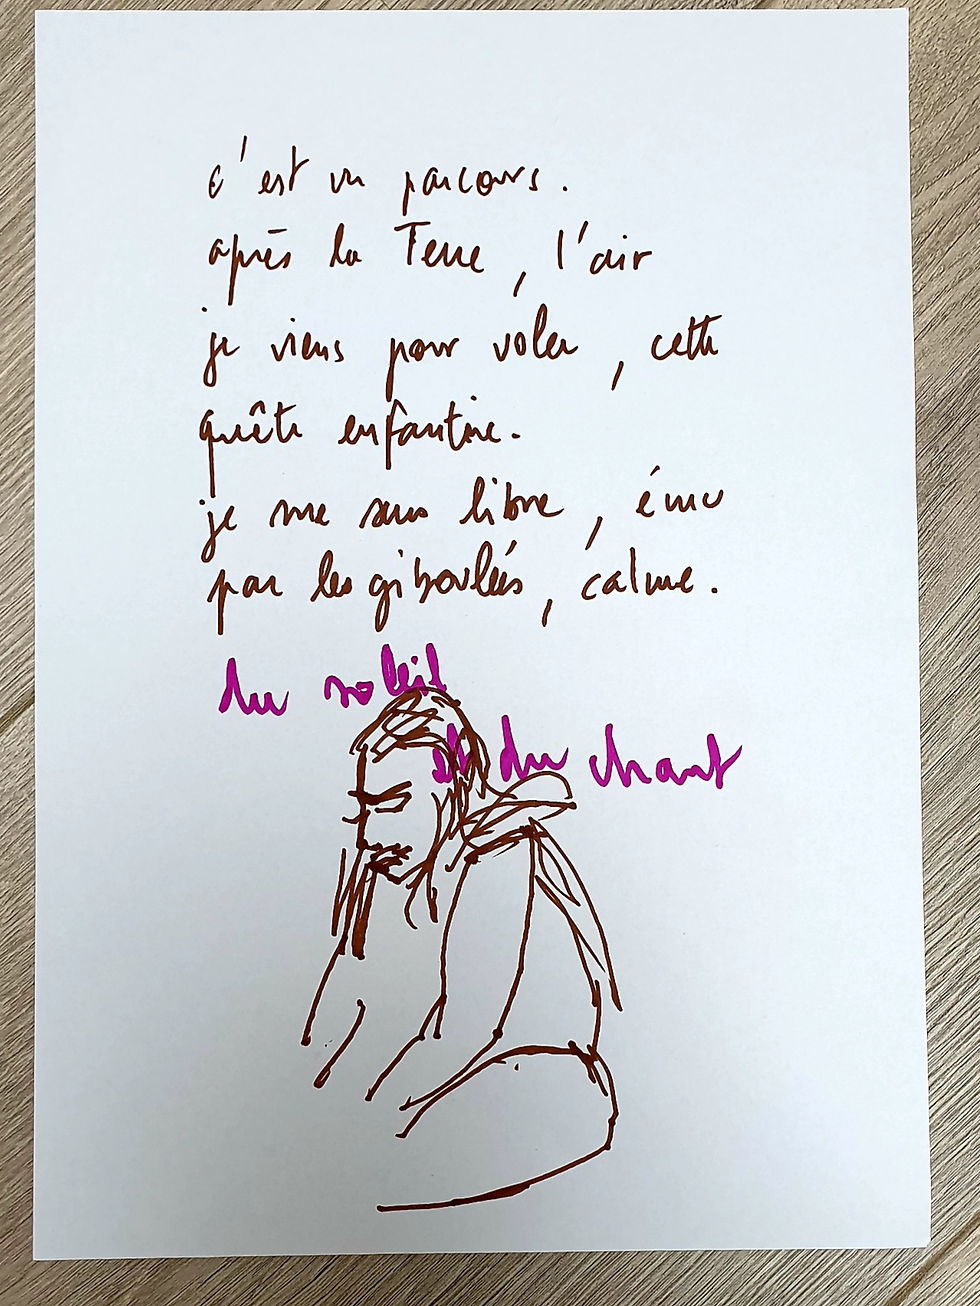 c'est un parcours.
après la Terre, l'air
je viens pour voler, cette
quête enfantine.
je me sens libre, ému
par les giboulées, calme.
du soleil
et du chant